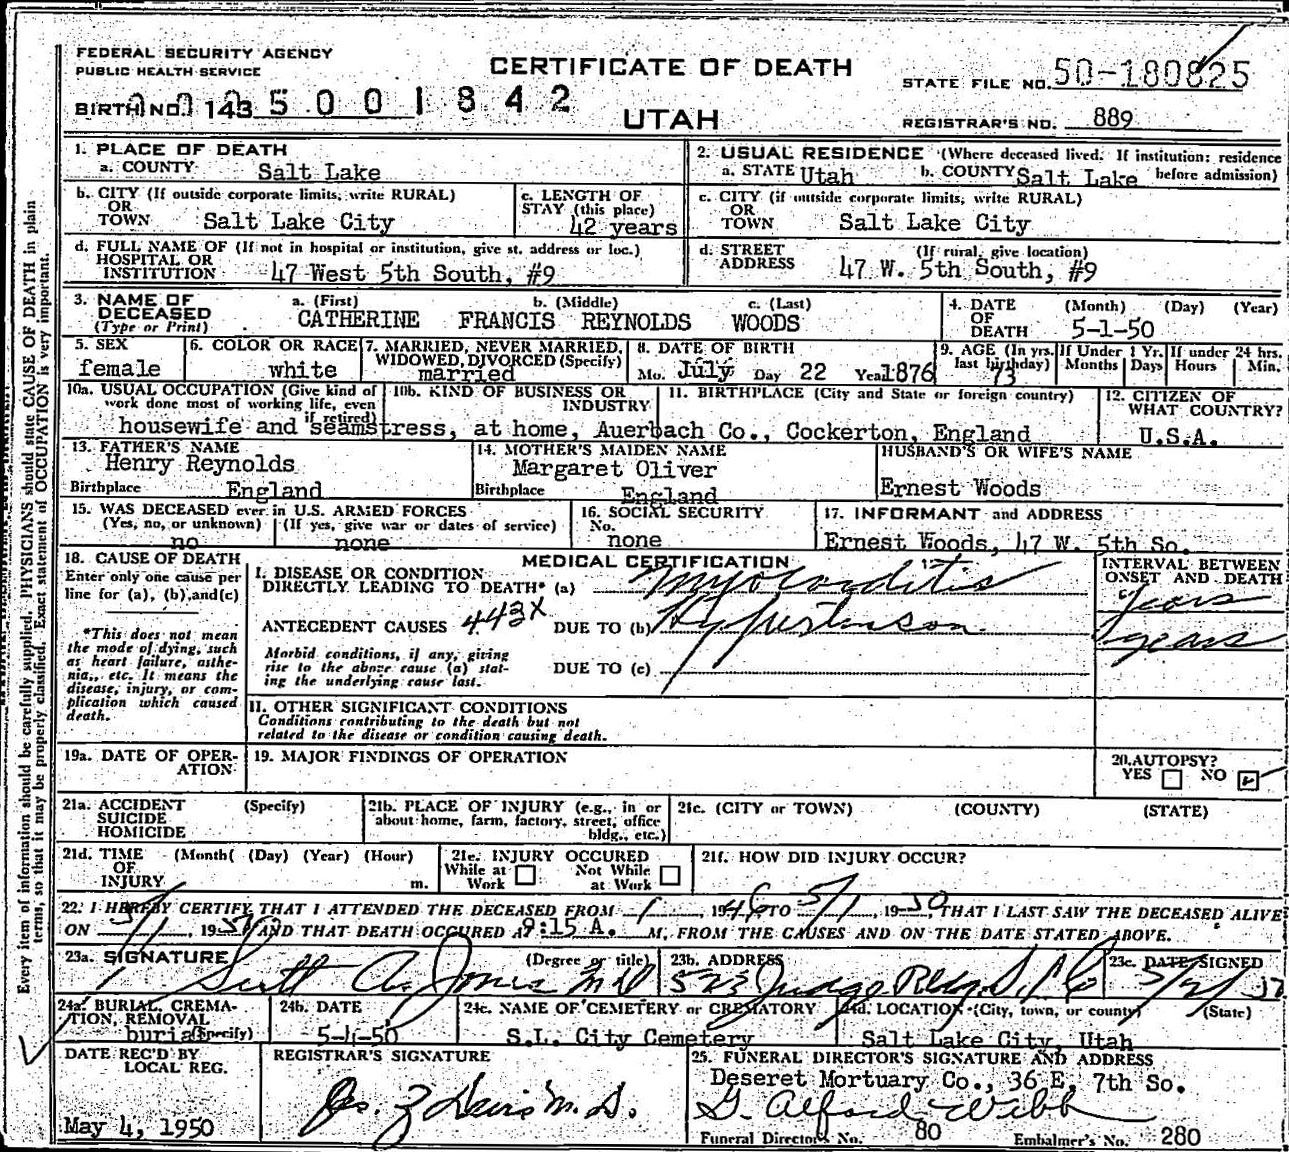 FEDERAL SECURITY AGENCY
PUBLIC HEALTH SERVICE
CERTIFICATE OF DEATH
STATE FILE NO. 50-180825
BIRTH NO. 143 5 0 0 1 8 4 2
UTAH
REGISTRAR'S NO. 889
1. PLACE OF DEATH
a. COUNTY Salt Lake
2. USUAL RESIDENCE (Where deceased lived. If institution: residence before admission)
a. STATE Utah b. COUNTY Salt Lake
b. CITY (If outside corporate limits, write RURAL)
OR
TOWN Salt Lake City
c. LENGTH OF
STAY (this place)
42 years
c. CITY (if outside corporate limits, write RURAL)
OR
TOWN Salt Lake City
d. FULL NAME OF (If not in hospital or institution, give st. address or loc.)
HOSPITAL OR
INSTITUTION 47 West 5th South, #9
d. STREET (If rural, give location)
ADDRESS 47 W. 5th South, #9
3. NAME OF DECEASED
(Type or Print)
a. (First) b. (Middle) c. (Last)
CATHERINE FRANCIS REYNOLDS WOODS
4. DATE OF DEATH (Month) (Day) (Year)
5-1-50
5. SEX
female
6. COLOR OR RACE
white
7. MARRIED, NEVER MARRIED,
WIDOWED, DIVORCED (Specify)
married
8. DATE OF BIRTH
Mo. July Day 22 Year 1876
9. AGE (In yrs. last birthday)
73
If Under 1 Yr.
Months Days
If under 24 hrs.
Hours Min.
10a. USUAL OCCUPATION (Give kind of
work done most of working life, even
if retired)
10b. KIND OF BUSINESS OR
INDUSTRY
11. BIRTHPLACE (City and State or foreign country)
housewife and seamstress, at home, Auerbach Co., Cockerton, England
12. CITIZEN OF
WHAT COUNTRY?
U.S.A.
13. FATHER'S NAME
Henry Reynolds
Birthplace England
14. MOTHER'S MAIDEN NAME
Margaret Oliver
Birthplace England
HUSBAND'S OR WIFE'S NAME
Ernest Woods
15. WAS DECEASED ever in U.S. ARMED FORCES
(Yes, no, or unknown) (If yes, give war or dates of service)
no none
16. SOCIAL SECURITY
No.
none
17. INFORMANT and ADDRESS
Ernest Woods, 47 W. 5th So.
18. CAUSE OF DEATH
Enter only one cause per
line for (a), (b), and (c)
*This does not mean
the mode of dying, such
as heart failure, asthe-
nia, etc. It means the
disease, injury, or com-
plication which caused
death.
MEDICAL CERTIFICATION
I. DISEASE OR CONDITION
DIRECTLY LEADING TO DEATH* (a) Myocarditis
ANTECEDENT CAUSES 443X DUE TO (b) Hypertension
Morbid conditions, if any, giving
rise to the above cause (a) stat-
ing the underlying cause last.
DUE TO (c)
INTERVAL BETWEEN
ONSET AND DEATH
years
years
II. OTHER SIGNIFICANT CONDITIONS
Conditions contributing to the death but not
related to the disease or condition causing death.
19a. DATE OF OPER-
ATION
19. MAJOR FINDINGS OF OPERATION
20. AUTOPSY?
YES NO
21a. ACCIDENT (Specify)
SUICIDE
HOMICIDE
21b. PLACE OF INJURY (e.g., in or
about home, farm, factory, street, office
bldg., etc.)
21c. (CITY or TOWN) (COUNTY) (STATE)
21d. TIME (Month( (Day) (Year) (Hour)
OF
INJURY m.
21e. INJURY OCCURED
While at Work Not While at Work
21f. HOW DID INJURY OCCUR?
22. I HEREBY CERTIFY THAT I ATTENDED THE DECEASED FROM 1946 TO 5/1, 1950, THAT I LAST SAW THE DECEASED ALIVE
ON 5/1, 1950 AND THAT DEATH OCCURED AT 9:15 A. M., FROM THE CAUSES AND ON THE DATE STATED ABOVE.
23a. SIGNATURE (Degree or title)
Scott A. Jones MD
23b. ADDRESS
523 Judge Bldg. S.L.C.
23c. DATE SIGNED
24a. BURIAL, CREMA-
TION, REMOVAL
(Specify)
burial
24b. DATE
5-4-50
24c. NAME OF CEMETERY or CREMATORY
S.L. City Cemetery
24d. LOCATION (City, town, or county) (State)
Salt Lake City, Utah
DATE REC'D BY
LOCAL REG.
May 4, 1950
REGISTRAR'S SIGNATURE
25. FUNERAL DIRECTOR'S SIGNATURE AND ADDRESS
Deseret Mortuary Co., 36 E. 7th So.
G. Alford Webb
Funeral Directors No. 80 Embalmer's No. 280
Every item of information should be carefully supplied. PHYSICIANS should state CAUSE OF DEATH in plain
terms, so that it may be properly classified. Exact statement of OCCUPATION is very important.